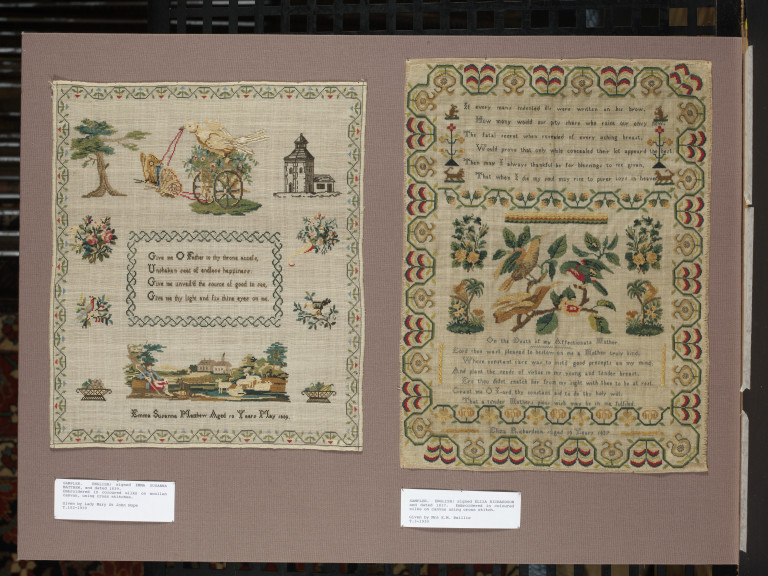 Give me O Father to thy throne access,
Unshaken seat of endless happiness:
Give me unveil'd the source of good to see,
Give me thy light and fix thine eyes on me.
Emma Susanna Matthew Aged 10 Years May
SAMPLER. ENGLISH; signed EMMA SUSANNA
MATTHEW, and dated
Embroidered in coloured silks on woollen
canvas, using cross stitches.
Given by Lady Mary St John Hope
If every mans internal were written on his brow,
How many would our pity share who raise our envy now,
The fatal secret when reveal'd of every aking breast,
Would prove that only while concealed their lot appeard the best.
Then may I always thankful be for blessings to me given,
That when I die my soul may rise to purer joys in heaven
On the Death of my Affectionate Father
Lord thou wast pleased to bestow on me a Father truly kind,
Whose constant care was to good precepts on my mind,
And plant the seeds of virtue in my young and tender breast,
Ere thou didst snatch him from my sight with thee to be at rest,
Grant me O Lord thy constant aid to do thy holy will,
That a tender wish may be in me fulfilled
Eliza Richardson Aged Years
SAMPLER. ENGLISH; signed ELIZA RICHARDSON
and dated Embroidered in coloured
silks on canvas using cross stitch.
Given by Mrs